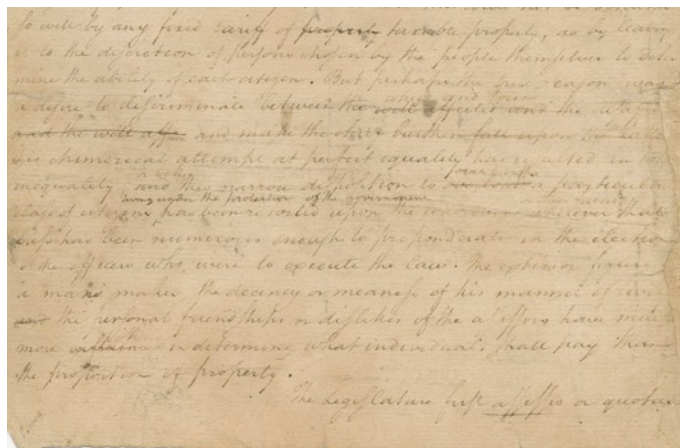 so well by any fixed tariff of property taxable property, as by leaving
it to the discretion of persons chosen by the people themselves to deter
mine the ability of each citizen. But perhaps the true reason was
a desire to discriminate between the well affected and the
and the well affe and make the burthen fall upon the latter
his chimerical attempt at perfect equality has resulted in
inequality and this narrow disposition to a particular
living under the protection of the government
class of citizens has been revolted upon the wherever that
class has been numerous enough to preponderate in the election
of the officers who were to execute the law. The exterior
a man makes the decency or meaness of his manner of
and the personal friendships or dislikes of the assessors have much
more in determining what individuals shall pay than
the proportion of property.
The legislature first assesses a quota